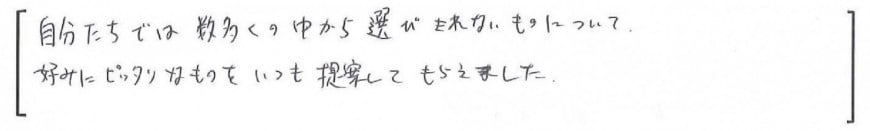 自分たちでは数多くの中から選びきれないものについて.
好みにピッタリなものをいつも提案してもらえました.